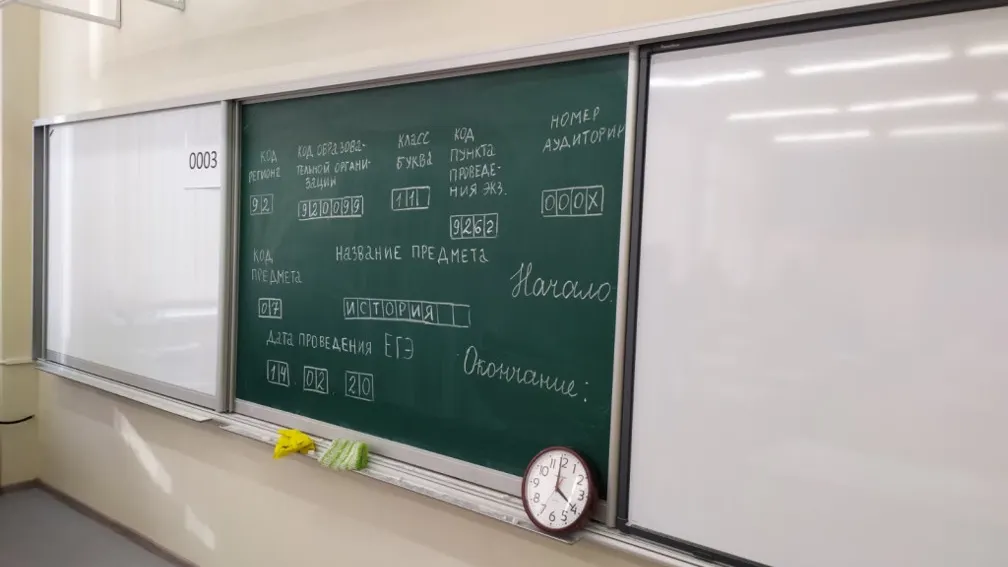 0003
КОД
РЕГИОНА
92
КОД ОБРАЗОВА-
ТЕЛЬНОЙ ОРГАНИ-
ЗАЦИИ
920099
КЛАСС
БУКВА
11
КОД
ПУНКТА
ПРОВЕДЕ-
НИЯ ЭКЗ.
9262
НОМЕР
АУДИТОРИИ
000X
КОД
ПРЕДМЕТА
07
НАЗВАНИЕ ПРЕДМЕТА
ИСТОРИЯ
Начало:
ДАТА ПРОВЕДЕНИЯ ЕГЭ
14 . 02 . 20
Окончание:
12
1
2
3
4
5
6
7
8
9
10
11